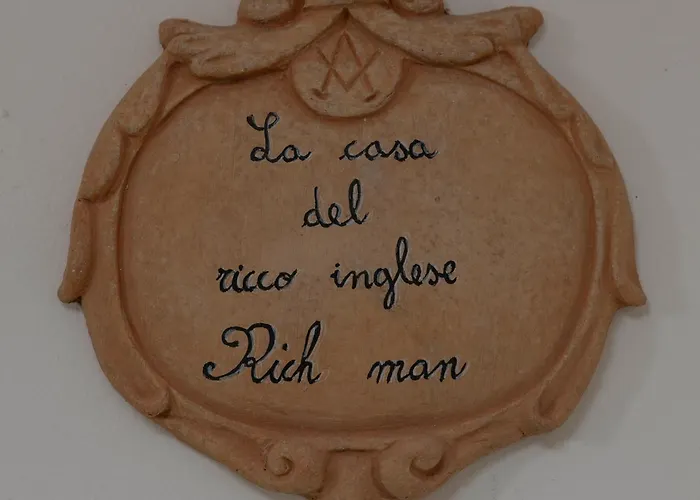 La casa
del
ricco inglese
Rich man